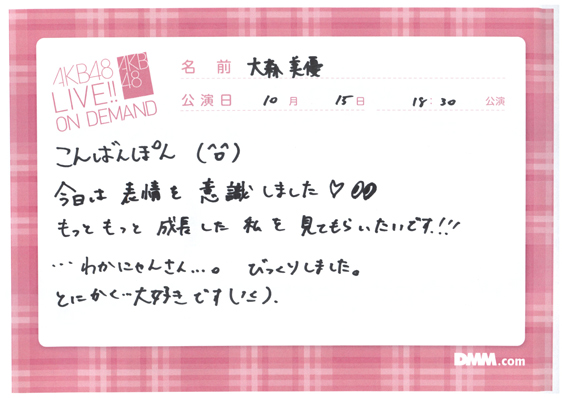 AKB48
LIVE!!
ON DEMAND
AKB
48
名 前 大森美優
公演日 10月 15日 18:30 公演
こんばんぽん (^o^)
今日は 表情を 意識しました♡
もっともっと 成長した 私を 見てもらいたいです!!!
…わかにゃんさん…。 びっくりしました。
とにかく…大好きです('ω').
DMM.com